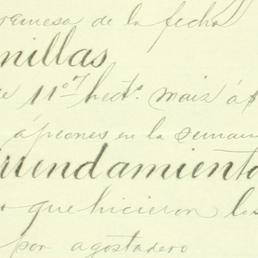 remesa de la fecha
millas
e 11.07 hect.s maiz á $
á peones en la seman
rrendamiento
que hicieron les
por agostadero